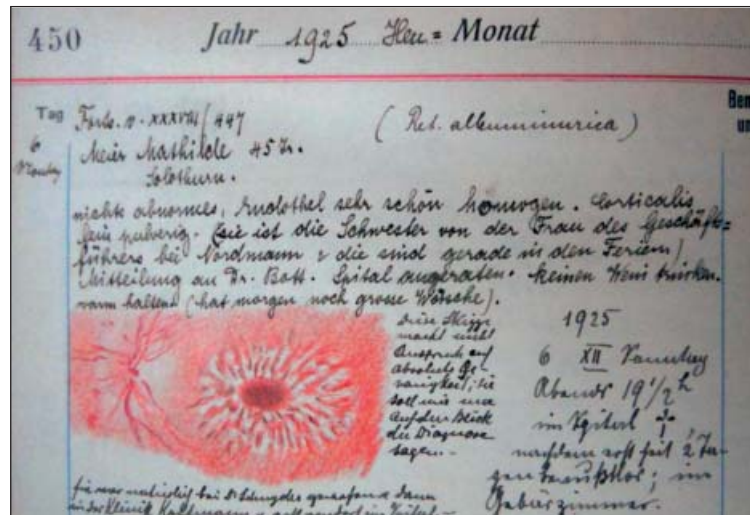 450 Jahr 1925 Heu = Monat
Tag Forts. v. XXXVIII/447 (Ret. albuminurica)
6 Meier Mathilde 45 J.
Montag Solothurn.
nichts abnormes, Endothel sehr schön homogen. Corticalis
fein pulverig. (sie ist die Schwester von der Frau des Geschäft=
führers bei Nordmann & die sind gerade in den Ferien)
Mitteilung an Dr. Bott. Spital angeraten. keinen Wein trinken.
warm halten (hat morgen noch grosse Wäsche).
Diese Skizze
macht nicht
Anspruch auf
absolute Ge-
nauigkeit; sie
soll mir nur
auf den Blick
die Diagnose
sagen.-
1925
6 XII Sonntag
Abends 19 1/2 h
im Spital
nachdem erst seit 2 Ta-
gen bewußtlos; im
Gebärzimmer.
sie war natürlich bei Dr. & dann
in der Klinik